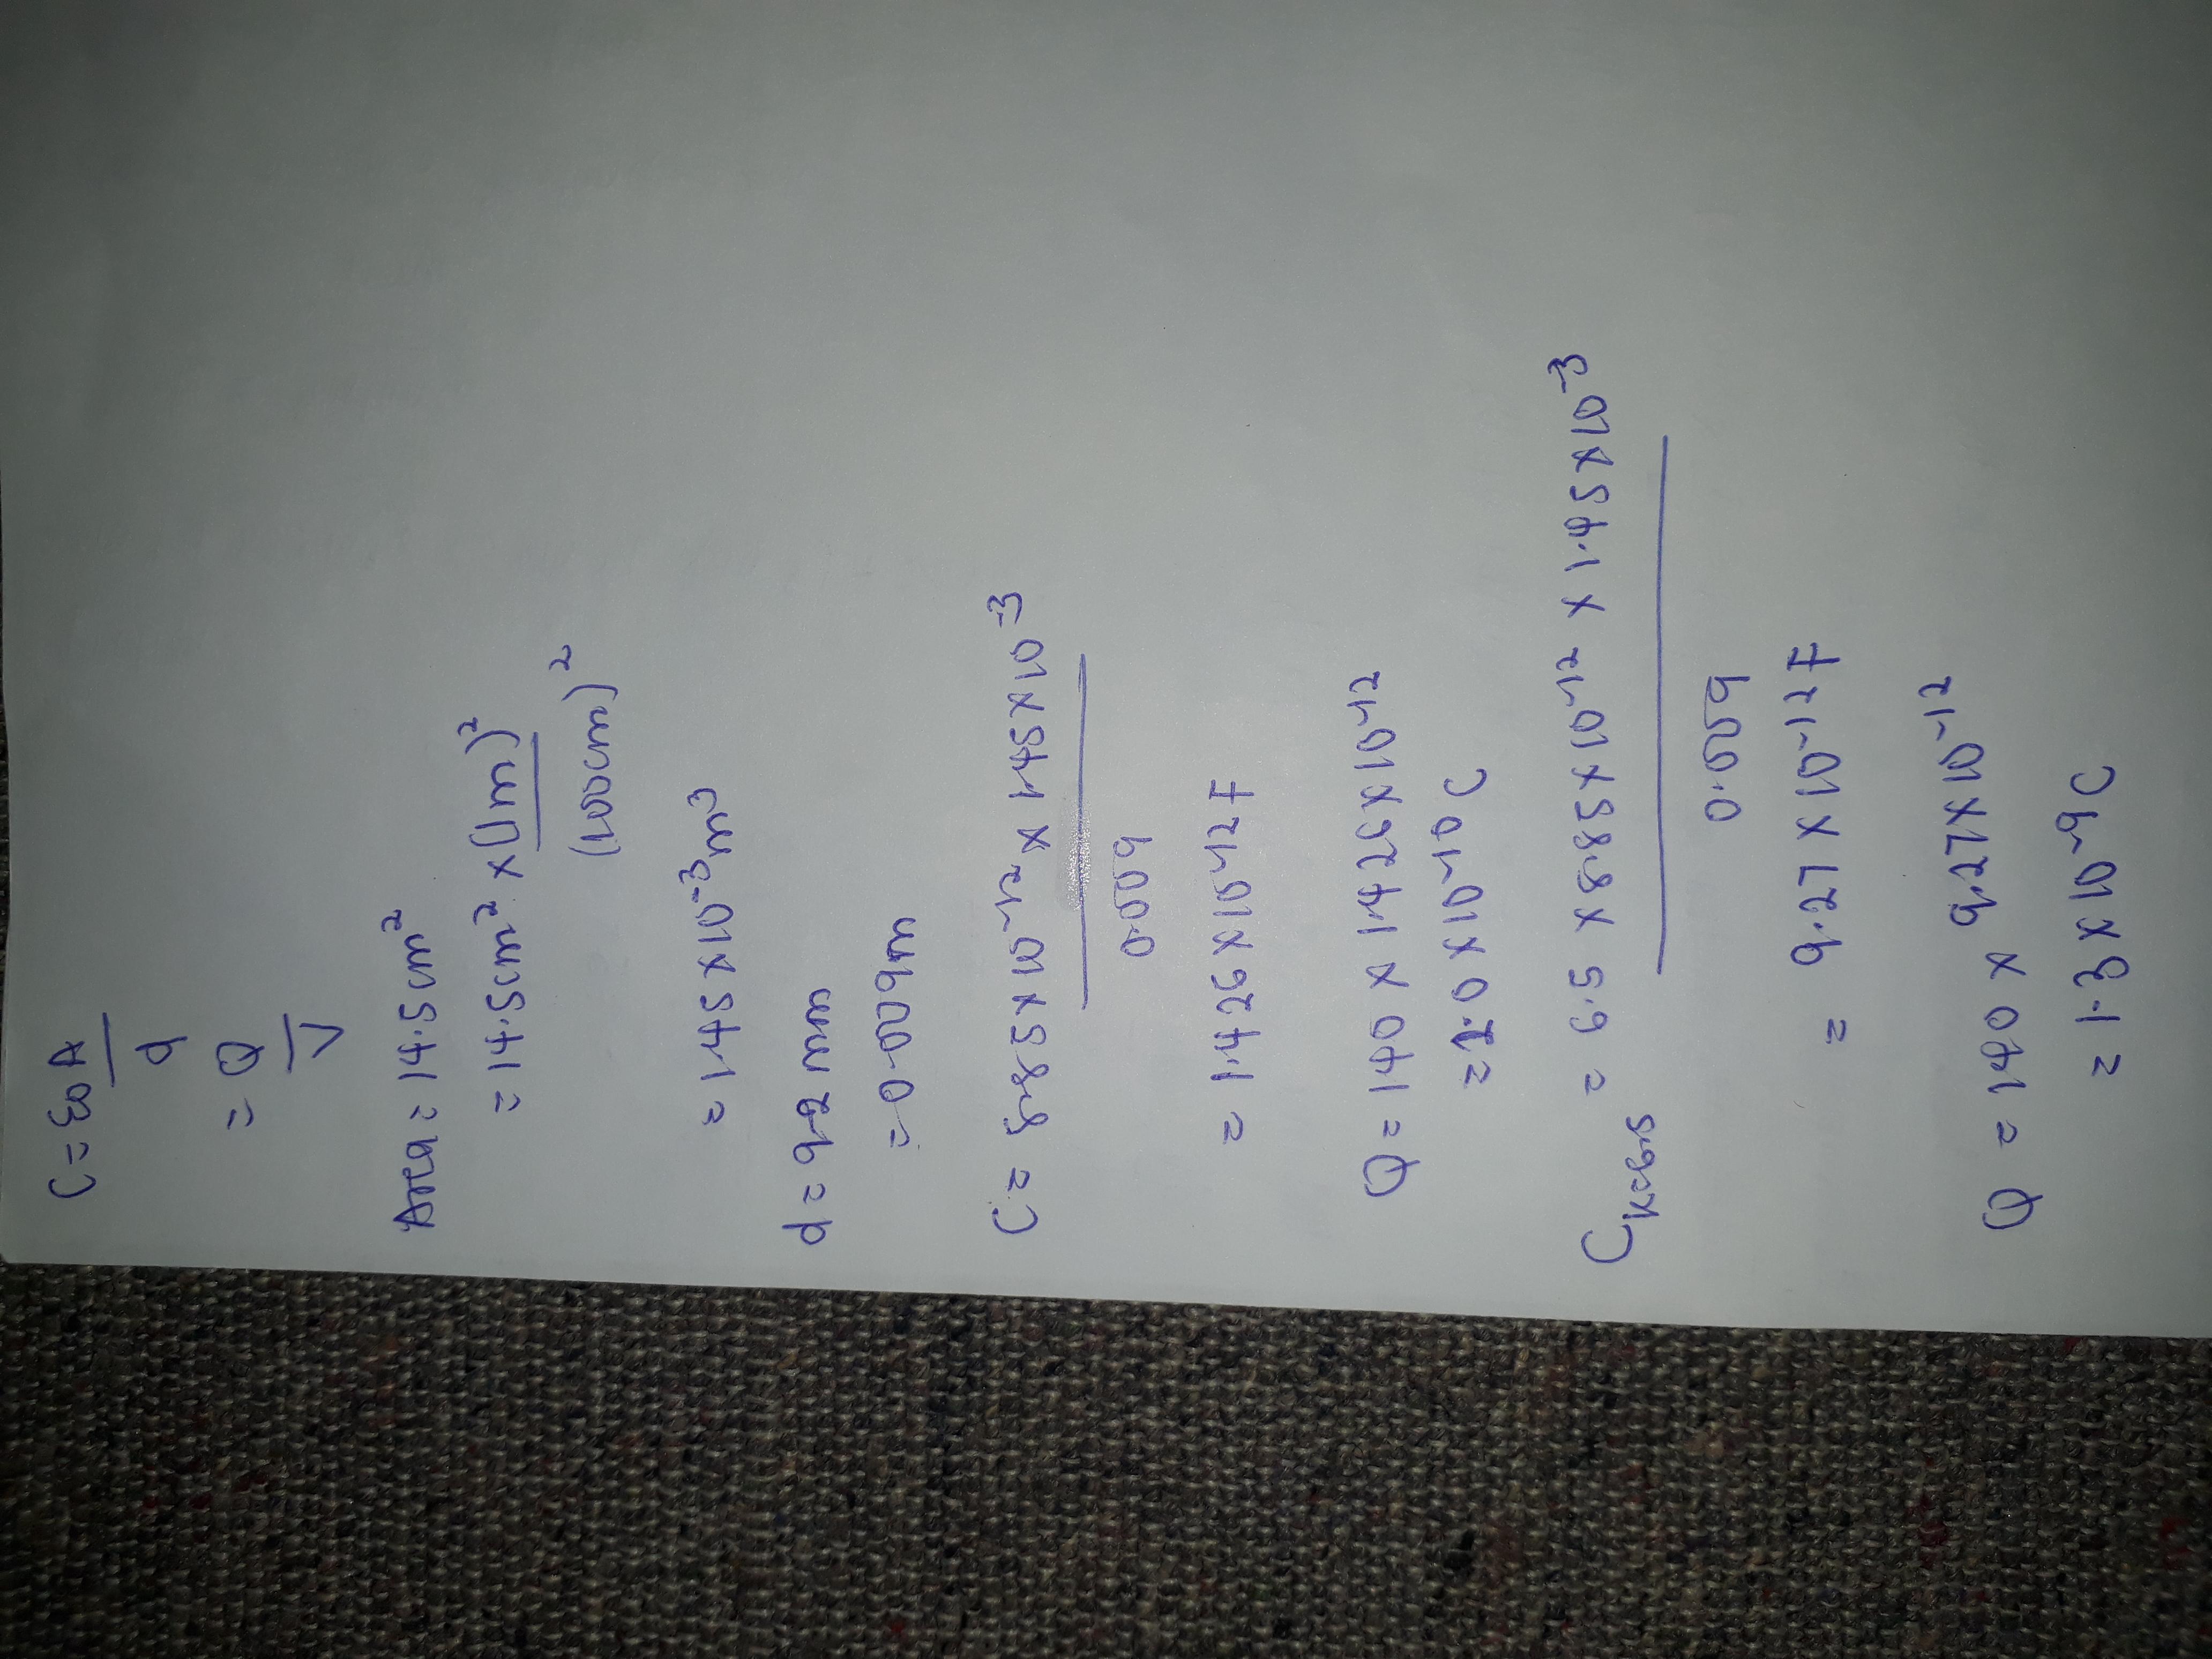 C = ε0 A
d
= Q
V
Area = 14.5cm²
= 14.5cm² × (1m)²
(100cm)²
= 1.45 × 10⁻³ m²
d = 9.2 mm
= 0.009m
C = 8.85 × 10⁻¹² × 1.45 × 10⁻³
0.009
= 1.426 × 10⁻¹² F
Q = 140 × 1.426 × 10⁻¹²
= 2.0 × 10⁻¹⁰ C
C K=6.5 = 6.5 × 8.85 × 10⁻¹² × 1.45 × 10⁻³
0.009
= 9.27 × 10⁻¹² F
Q = 140 × 9.27 × 10⁻¹²
= 1.3 × 10⁻⁹ C